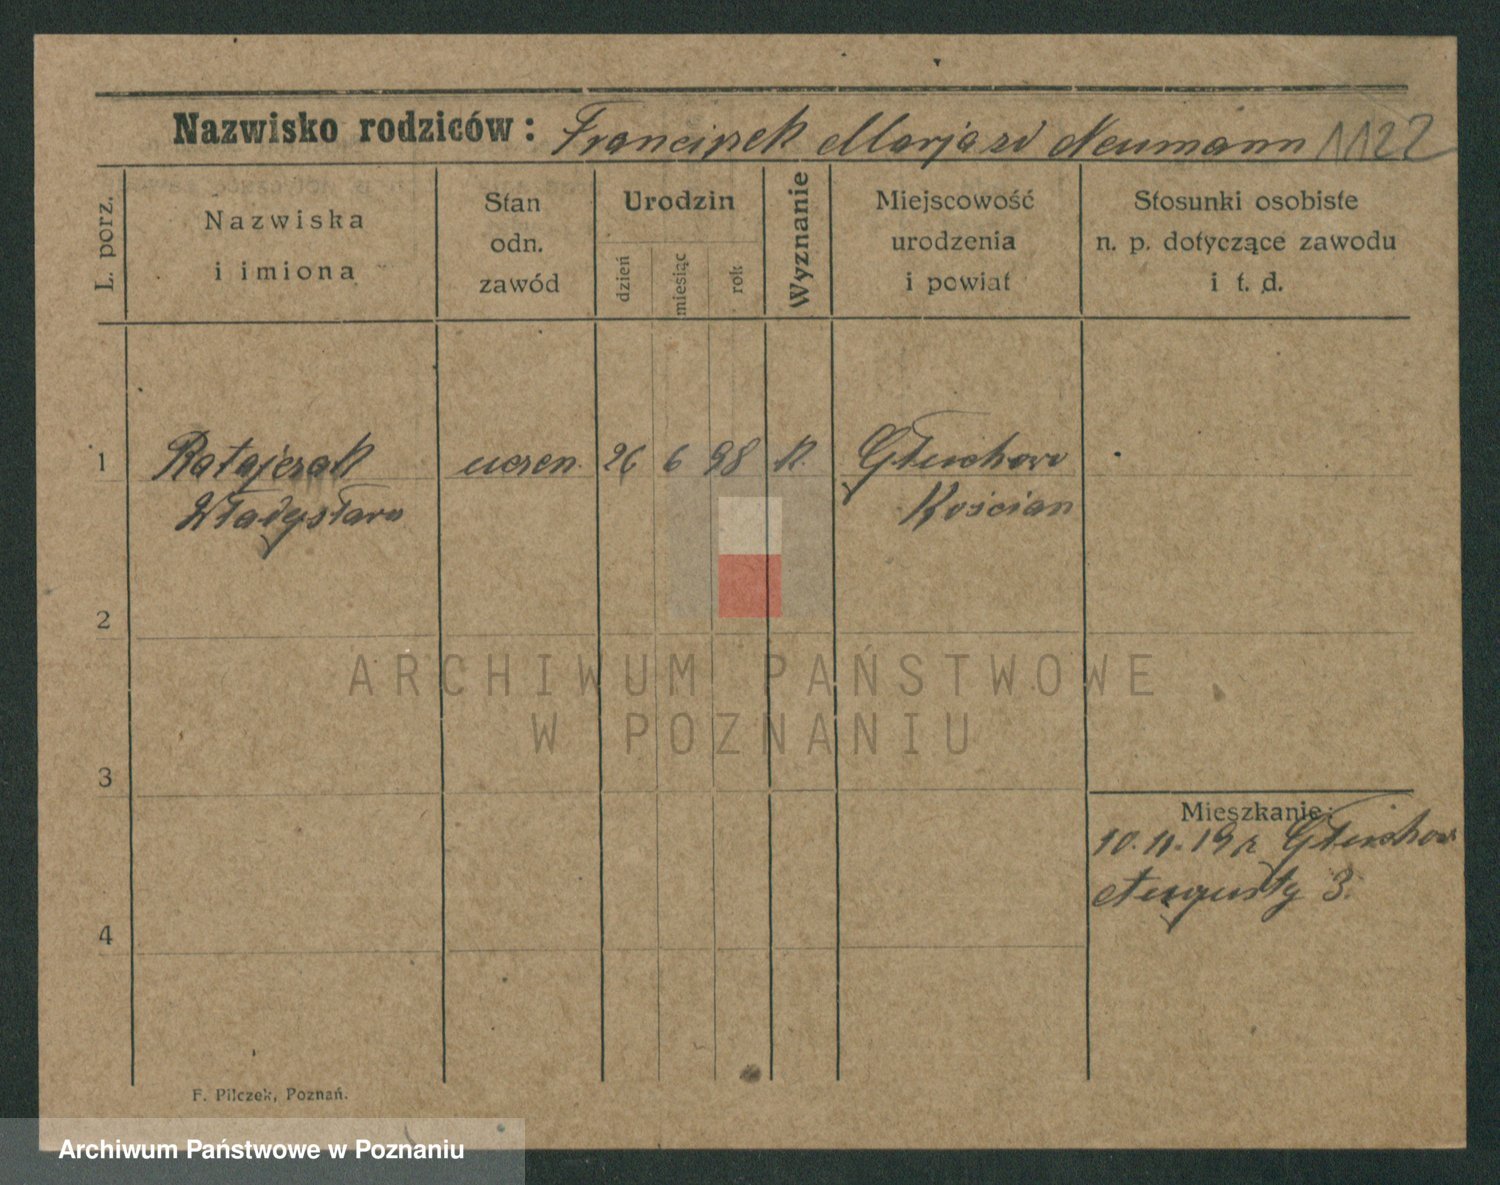 Nazwisko rodziców: Franciszek Marja zd Neumann 1122
L. porz.
Nazwiska
i imiona
Stan
odn.
zawód
Urodzin
dzień
miesiąc
rok
Wyznanie
Miejscowość
urodzenia
i powiat
Stosunki osobiste
n. p. dotyczące zawodu
i t. d.
1 Ratajczak uczen. 26 6 98 K. Głuchowo
Władysław Kościan
2
ARCHIWUM PAŃSTWOWE
W POZNANIU
3
Mieszkanie:
10.11.19 z Głuchowo
Augusty 3.
4
F. Pilczek, Poznań.
Archiwum Państwowe w Poznaniu